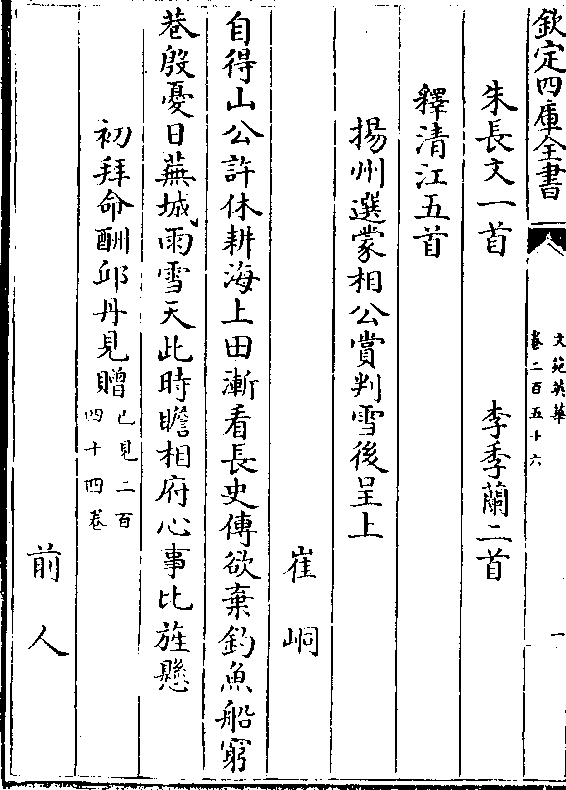 欽定四庫全書
文苑英華
卷二百五十六
一
朱長文一首 李季蘭二首
釋清江五首
揚州選蒙相公賞判雪後呈上
崔峒
自得山公許休耕海上田漸看長史傳欲棄釣魚船窮
巷殷憂日蕪城雨雪天此時瞻相府心事比旌懸
初拜命酬邱丹見贈已見二百
四十四卷
前人